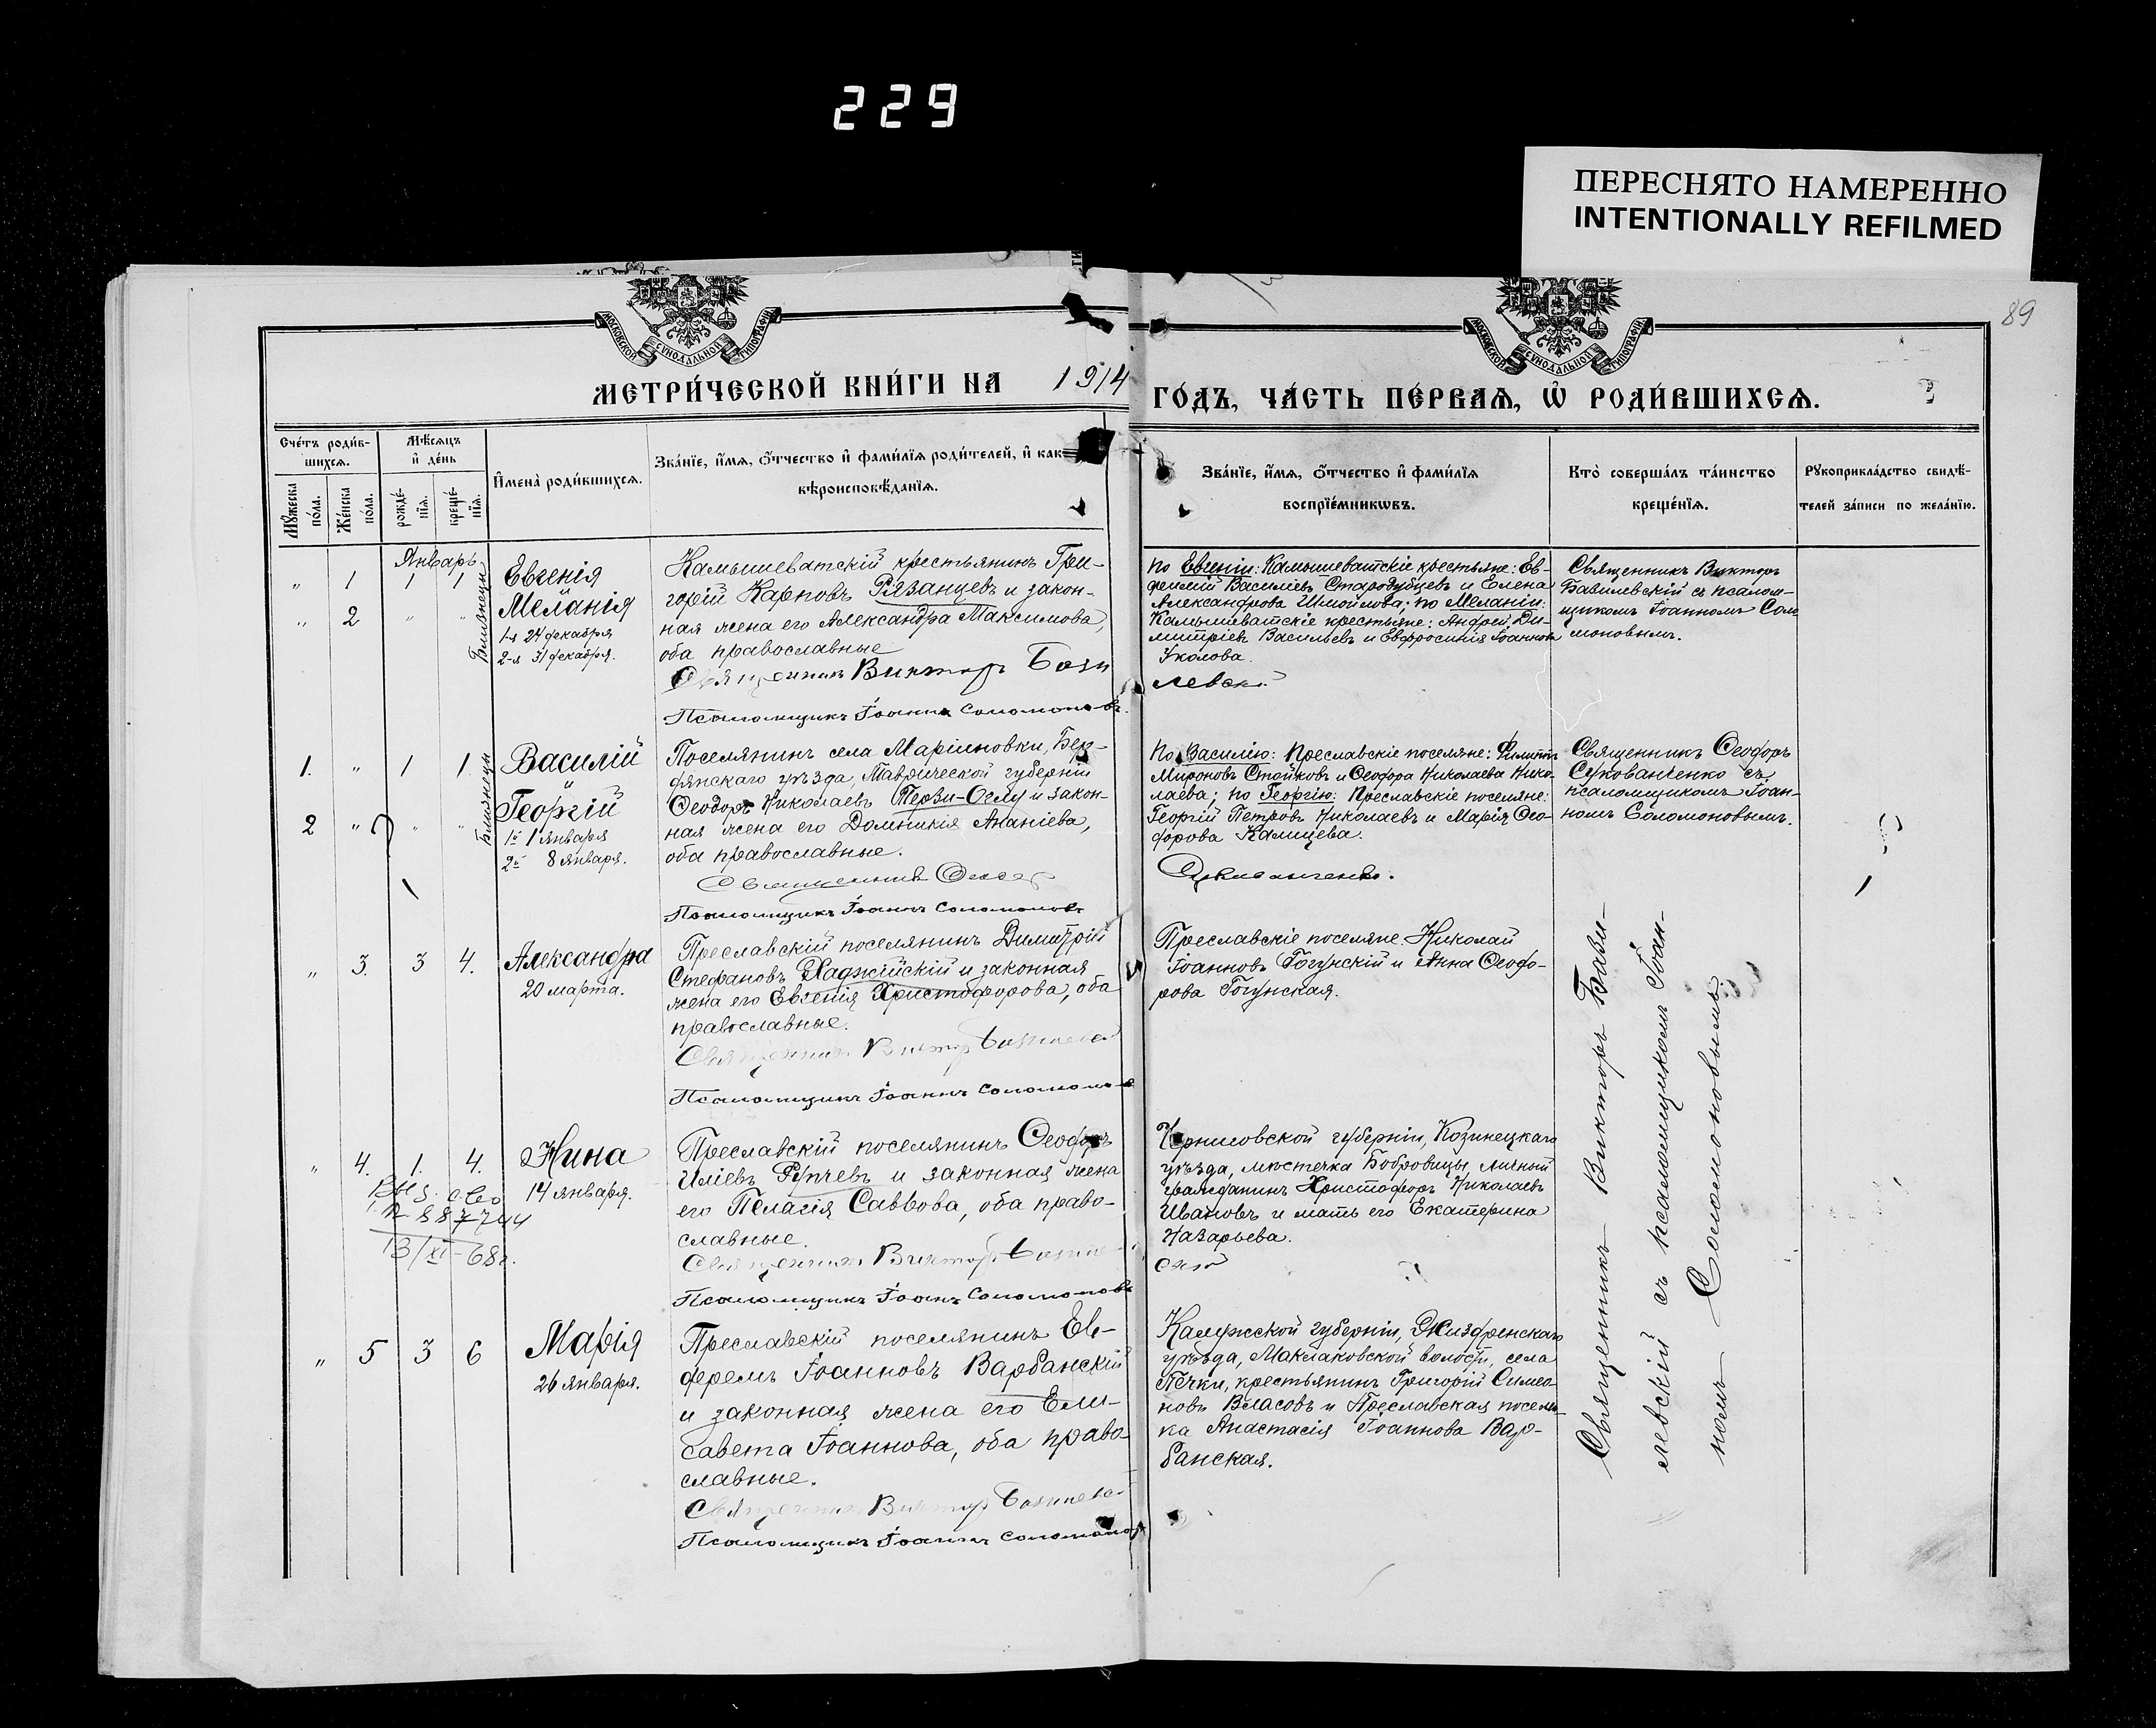 229
ПЕРЕСНЯТО НАМЕРЕННО
INTENTIONALLY REFILMED
89
МОСКОВСКОЙ СѴНОДАЛЬНОЙ ТИПОГРАФІИ
МОСКОВСКОЙ СѴНОДАЛЬНОЙ ТИПОГРАФІИ
МЕТРИ́ЧЕСКОЙ КНИ́ГИ НА 1914 ГО́ДЪ, ЧА́СТЬ ПЕ́РВАѦ, Ѡ҆ РОДИ́ВШИХСѦ.
Сче́тъ роди́в-
шихсѧ.
Мѣ́сѧцъ
и҆ де́нь
Мꙋ́жеска
по́ла.
Же́нска
по́ла.
рожде́-
нїѧ.
креще́-
нїѧ.
И҆мена̀ роди́вшихсѧ.
Зва́нїе, и҆́мѧ, ѻ҆́тчество и҆ фами́лїѧ роди́телей, и҆ как
вѣроисповѣ́данїѧ.
Зва́нїе, и҆́мѧ, ѻ҆́тчество и҆ фами́лїѧ
воспрїе́мникѡвъ.
Кто̀ соверша́лъ та́инство
креще́нїѧ.
Рꙋкоприкла́дство свидѣ́-
телей за́писи по жела́нїю.
Январь
" 1 1 1
" 2 " "
Близнецы
Евгенія
Меланія
1-я 24 декабря
2-я 31 декабря.
Камышеватскій крестьянинъ Гри-
горій Карповъ Рязанцевъ и закон-
ная жена его Александра Максимова,
оба православные
Священникъ Викторъ Бази
левскій
Псаломщикъ Іоаннъ Соломоновъ.
По Евгеніи: Камышеватскіе крестьяне: Ев-
фимій Василіевъ Стародубцевъ и Елена
Александрова; по Меланіи:
Камышеватскіе крестьяне: Андрей Ди-
митріевъ Васильевъ и Евфросинія Іоаннова
Уколова.
Священникъ Викторъ
Базилевскій съ псалом-
щикомъ Іоанномъ Соло
моновымъ.
1. " 1 1
2 " " "
Близнецы
Василій
и
Георгій
1й 1 января
2й 8 января.
Поселянинъ села Маріиновки, Бер-
дянскаго уѣзда, Таврической губерніи
Ѳеодоръ Николаевъ Терзи-Оглу и закон-
ная жена его Домникія Ананіева,
оба православные.
Священникъ Ѳеодоръ
Сукованченко.
Псаломщикъ Іоаннъ Соломоновъ
По Василію: Преславскіе поселяне: Филиппъ
Мироновъ Стойковъ и Ѳеодора Николаева Нико-
лаева; по Георгію: Преславскіе поселяне:
Георгій Петровъ Николаевъ и Марія Ѳео-
дорова Калицева.
Священникъ Ѳеодоръ
Сукованченко съ
псаломщикомъ Іоан-
номъ Соломоновымъ.
" 3. 3 4.
Александра
20 марта.
Преславскій поселянинъ Димитрій
Стефановъ Хаджійскій и законная
жена его Евгенія Христофорова, оба
православные.
Священникъ Викторъ Базилевскій
Псаломщикъ Іоаннъ Соломоновъ
Преславскіе поселяне. Николай
Іоанновъ Гогунскій и Анна Ѳеодо-
рова Гогунская.
" 4. 1. 4.
Выд. сво
13/XI-68г.
Нина
14 января.
Преславскій поселянинъ Ѳеодоръ
Иліевъ Рупчевъ и законная жена
его Пелагія Саввова, оба право-
славные.
Священникъ Викторъ Базилев
скій
Псаломщикъ Іоаннъ Соломоновъ
Черниговской губерніи, Козинецкаго
уѣзда, мѣстечка Бобровицы, личный
гражданинъ Христофоръ Николаевъ
Ивановъ и мать его Екатерина
Назарьева.
" 5 3 6
Марія
26 января.
Преславскій поселянинъ Ев-
феремъ Іоанновъ Варбанскій
и законная жена его Ели-
савета Іоаннова, оба право-
славные.
Священникъ Викторъ Базилевс
Псаломщикъ Іоаннъ Соломоновъ
Калужской губерніи, Жиздренскаго
уѣзда, Маклаковской волости, села
Печки, крестьянинъ Григорій Симео-
новъ Власовъ и Преславская поселян-
ка Анастасія Іоаннова Вар-
банская.
Священникъ Викторъ Бази-
левскій съ псаломщикомъ Іоан-
номъ Соломоновымъ.